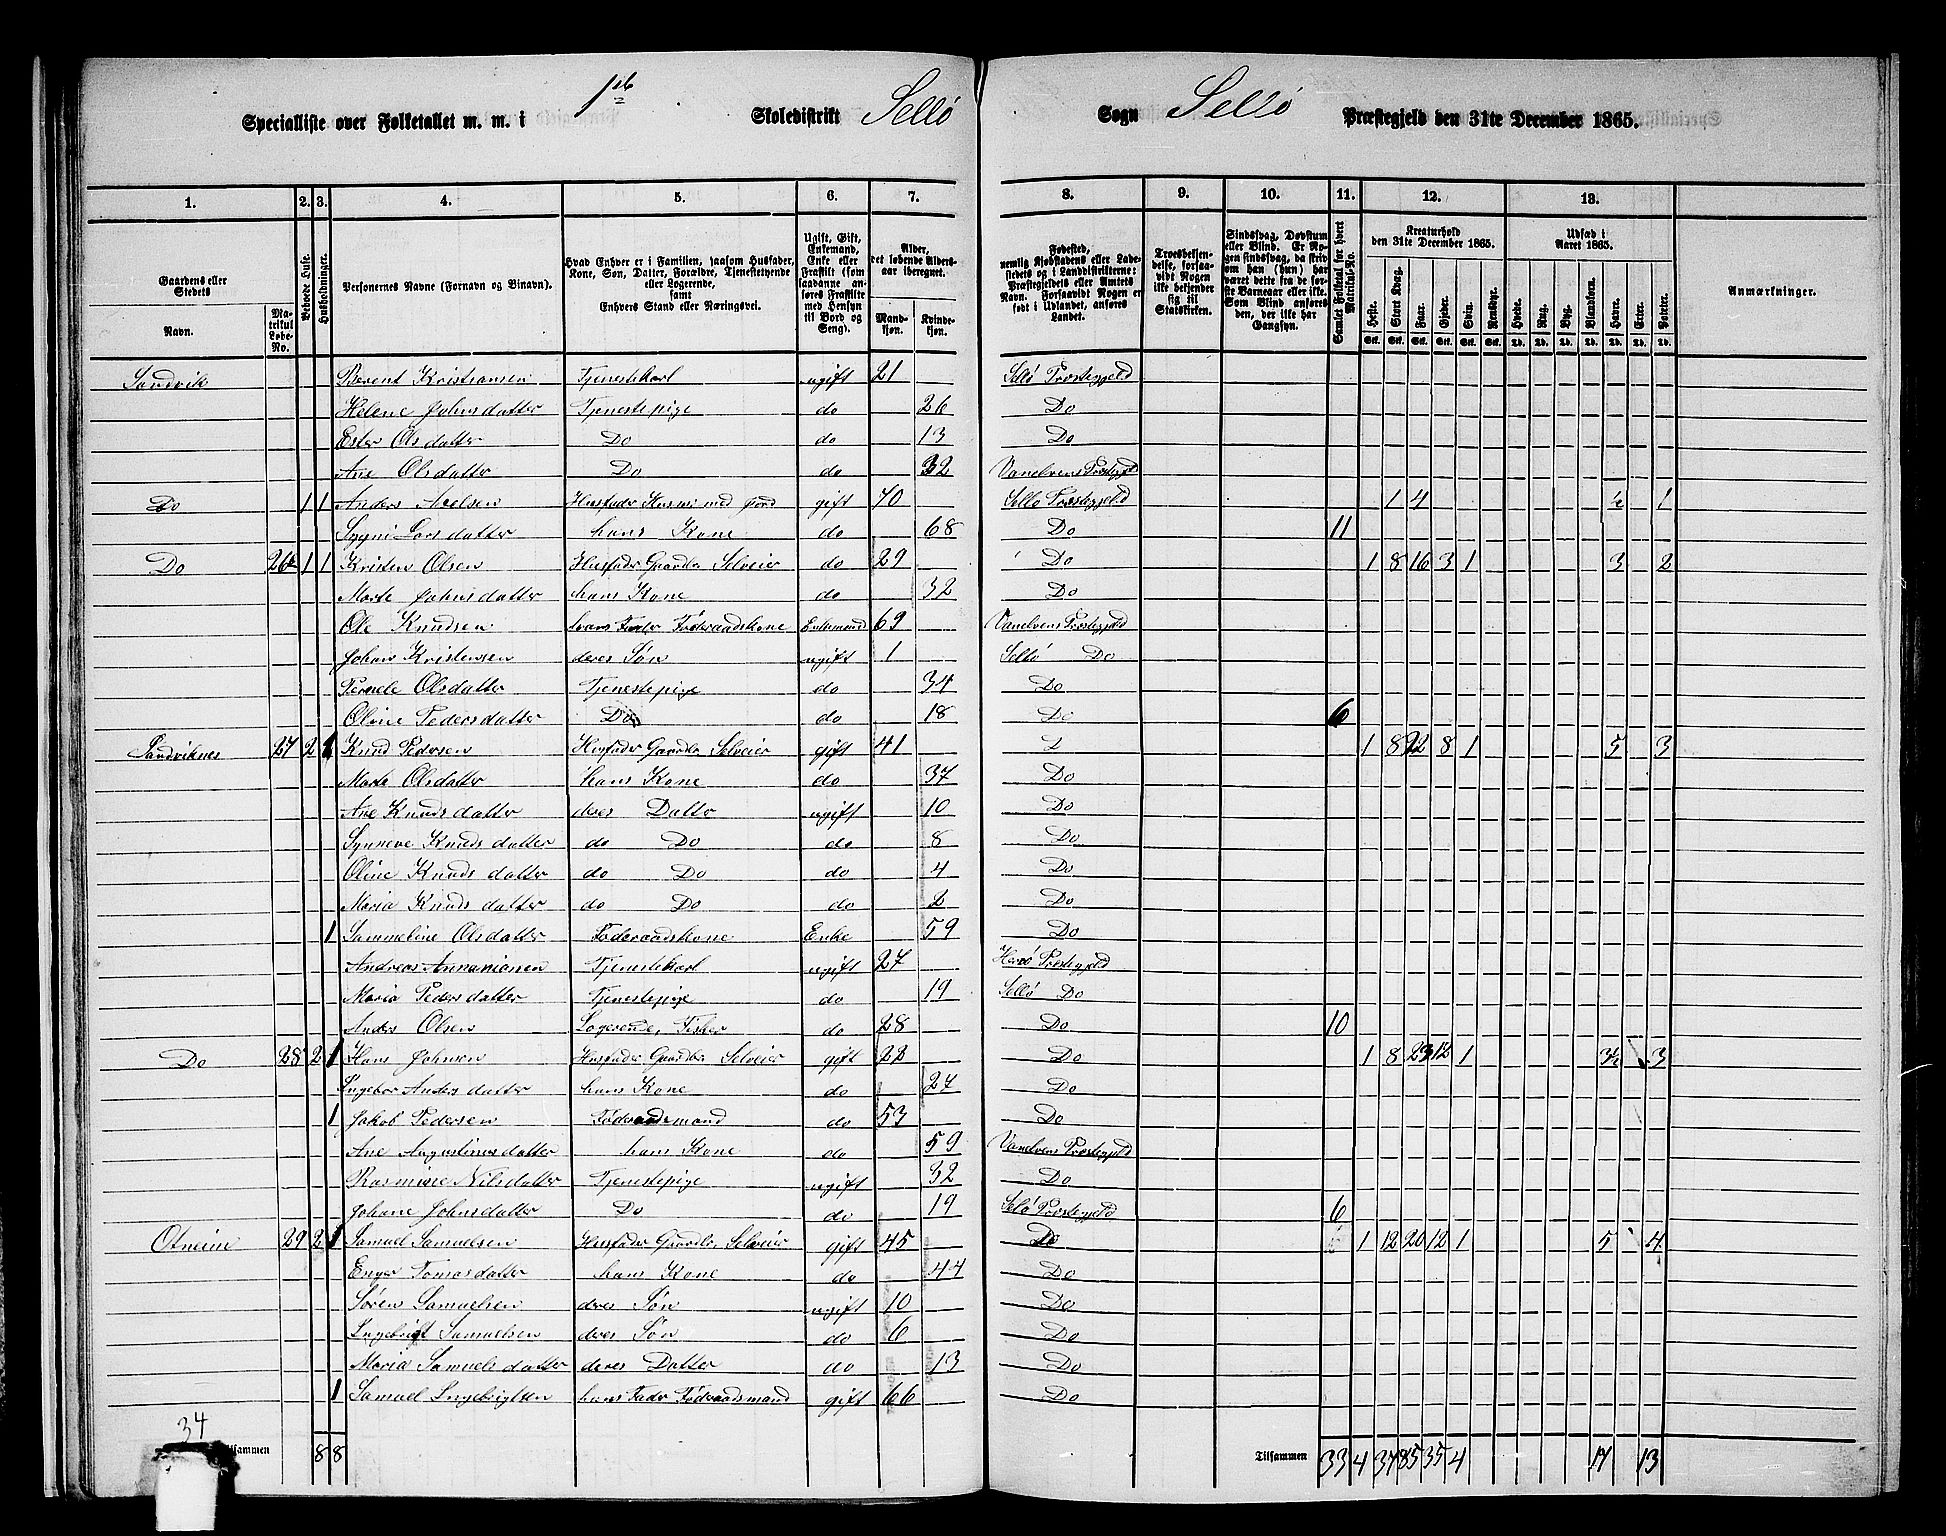 Specialliste over Folketallet m. m. i 1ste Skoledistrikt Sellö Sogn Sellö Præstegjeld den 31te December 1865.
1. 2. 3. 4. 5. 6. 7. 8. 9. 10. 11. 12. 13.
Gaardens eller Stedets Navn. Matrikul Løbe-No. Beboede Huse. Husholdninger. Personernes Navne (Fornavn og Binavn). Hvad Enhver er i Familien, saasom Husfader, Kone, Søn, Datter, Forældre, Tjenestetyende eller Logerende, samt Enhvers Stand eller Næringsvei. Ugift, Gift, Enkemand, Enke eller Fraskilt (som saadanne anføres Fraskilte med Hensyn til Bord og Seng). Alder, det løbende Alders-aar iberegnet. Mandkjøn. Kvindekjøn.
Fødested, nemlig Kjøbstadens eller Ladestedets og i Landdistrikterne: Præstegjeldets eller Amtets Navn. Forsaavidt Nogen er født i Udlandet, anføres Landet. Troesbekjendelse, forsaavidt Nogen ikke bekjender sig til Statskirken. Sindssvag, Døvstum eller Blind. Er Nogen sindssvag, da skrives om han (hun) har været dette fra de første Barneaar eller ikke. Som Blind anføres den, der ikke har Gangsyn. Samlet Folketal for hvert Matrikul-No. Kreaturhold den 31te December 1865. Heste. Stort Kvæg. Faar. Gjeder. Sviin. Rensdyr. Udsæd i Aaret 1865. Hvede. Rug. Byg. Blandkorn. Havre. Erter. Poteter. Anmærkninger.
Sandvik Berent Kristiansen Tjenestekarl ugift 21 Sellö Præstegjeld
Helene Johnsdatter Tjenestepige do 26 Do
Ester Olsdatter Do do 13 Do
Ane Olsdatter Do do 32 Vanelvens Præstegjeld
Do 1 1 Anders Axelsen Husfader Husmand med Jord gift 70 Sellö Præstegjeld 1 4 ½ 1
Larsdatter hans Kone do 68 Do 11
Do 26 1 1 Kristen Olsen Husfader Gaardbr Selveier do 29 Do 1 8 16 3 1 3 2
Marte Johnsdatter hans Kone do 32 Do
Ole Knudsen hans Fader Föderaadskone Enkemand 69 Vanelvens Præstegjeld
Johan Kristensen deres Sön ugift 1 Sellö Do
Pernele Olsdatter Tjenestepige do 34 Do
Oline Pedersdatter Do do 18 Do 6
Sandviknes 27 2 1 Knud Pedersen Husfader Gaardbr Selveier gift 41 1 8 22 8 1 5 3
Marte Olsdatter hans Kone do 37 Do
Ane Knudsdatter deres Datter ugift 10 Do
Synneve Knudsdatter do Do do 8 Do
Oline Knudsdatter do Do do 4 Do
Maria Knudsdatter do Do do 2 Do
1 Sammeline Olsdatter Föderaadskone Enke 59 Do
Andreas Annaniassen Tjenestekarl ugift 27 Herö Præstegjeld
Maria Pedersdatter Tjenestepige do 19 Sellö Do
Anders Olsen Logerende, Fisker do 28 Do 10
Do 28 2 1 Hans Johnsen Husfader Gaardbr Selveier gift 22 Do 1 8 23 12 1 3½ 3
Ingebor Andersdatter hans Kone do 27 Do
1 Jakob Pedersen Föderaadsmand do 53 Do
Ane Augustinusdatter hans Kone do 59 Vanelvens Præstegjeld
Rasmine Nilsdatter Tjenestepige ugift 32 Do
Johane Johnsdatter Do do 19 Sellö Præstegjeld 6
Otneim 29 2 1 Samuel Samuelsen Husfader Gaardbr Selveier gift 45 Do 1 12 20 12 1 5 4
Enger Tomasdatter hans Kone do 44 Do
Sören Samuelsen deres Sön ugift 10 Do
Ingebrigt Samuelsen deres Sön do 6 Do
Maria Samuelsdatter deres Datter do 13 Do
1 Samuel Ingebrigtsen hans Fader Föderaadsmand gift 66 Do
34
Tilsammen 8 8 Tilsammen 33 4 37 85 35 4 17 13